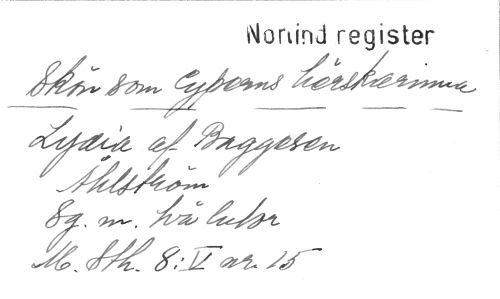 Norlind register
Skön som Cyperns härskarinna
Lydia af Baggesen
Åhlström
Sg. m. två lutor
M. Sth. 8: V nr. 15